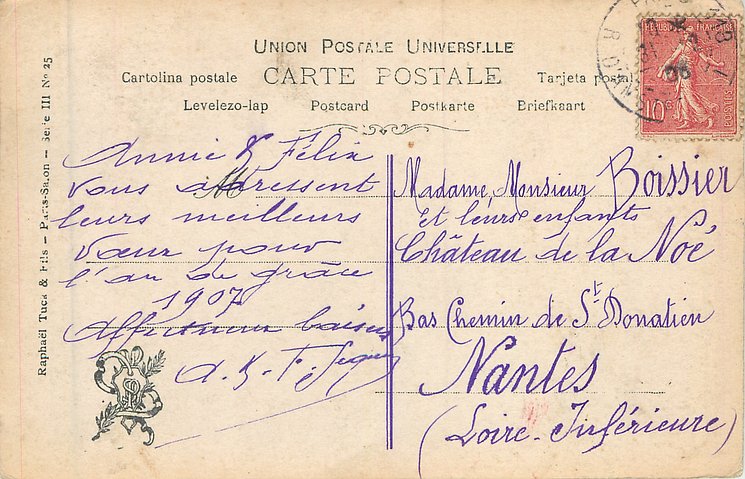 UNION POSTALE UNIVERSELLE
Cartolina postale CARTE POSTALE Tarjeta postal
Levelezo-lap Postcard Postkarte Briefkaart
Raphaël Tuck & Fils — Paris-Salon — Série III No 25
RÉPUBLIQUE FRANÇAISE
10c
POSTES
06
Annie & Félix
vous adressent
leurs meilleurs
vœux pour
l'an de grâce
1907
Affectueux baisers
A. & F.
Madame, Monsieur Boissier
et leurs enfants
Château de la Noé
Bas Chemin de St Donatien
Nantes
(Loire-Inférieure)